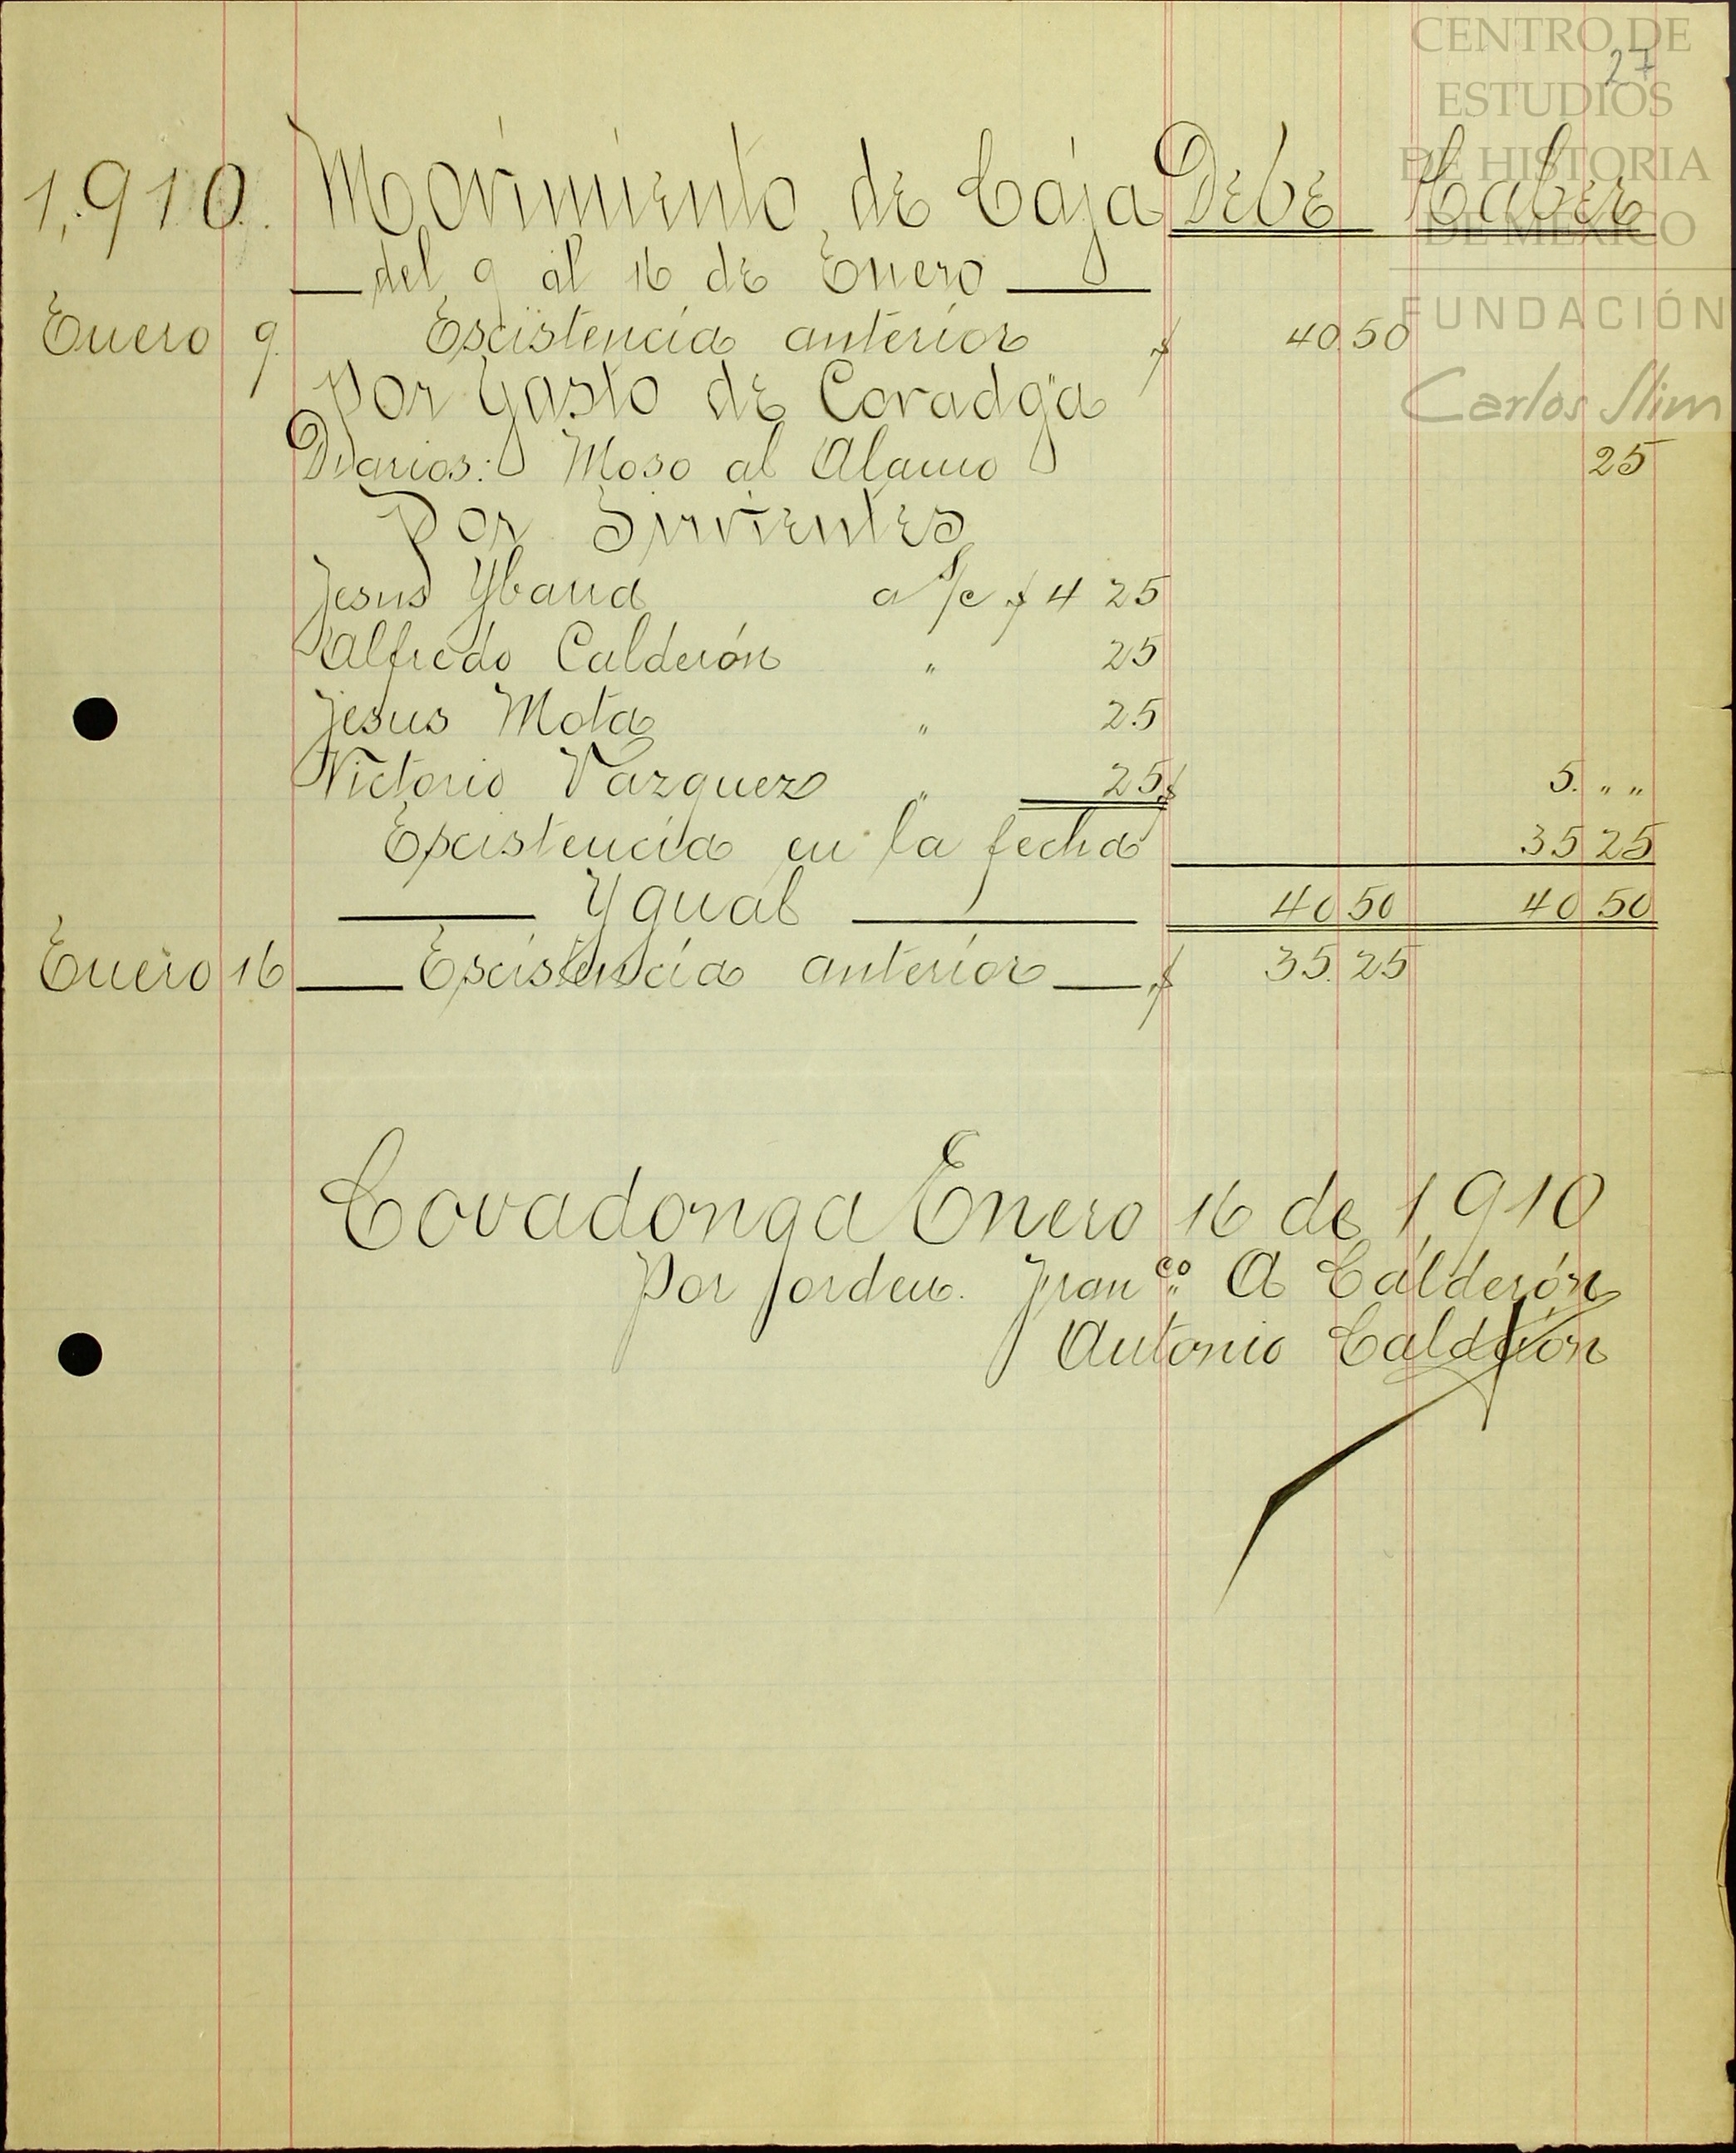 CENTRO DE
ESTUDIOS
DE HISTORIA
DE MÉXICO
FUNDACIÓN
Carlos Slim
27
1,910. Movimiento de Caja Debe Haber
del 9 al 16 de Enero
Enero 9. Escistencia anterior $ 40.50
Por Gasto de Covadga
Diarios: Moso al Alamo 25
Por Sirvientes
Jesus Ybarra a s/c $ 4 25
Alfredo Calderón " 25
Jesus Mota " 25
Victorio Vazquez " 25 $ 5. " "
Escistencia en la fecha 35 25
Ygual 40 50 40 50
Enero 16 Escistencia anterior $ 35.25
Covadonga Enero 16 de 1,910
Por orden. Franco. A Calderón
Antonio Calderón